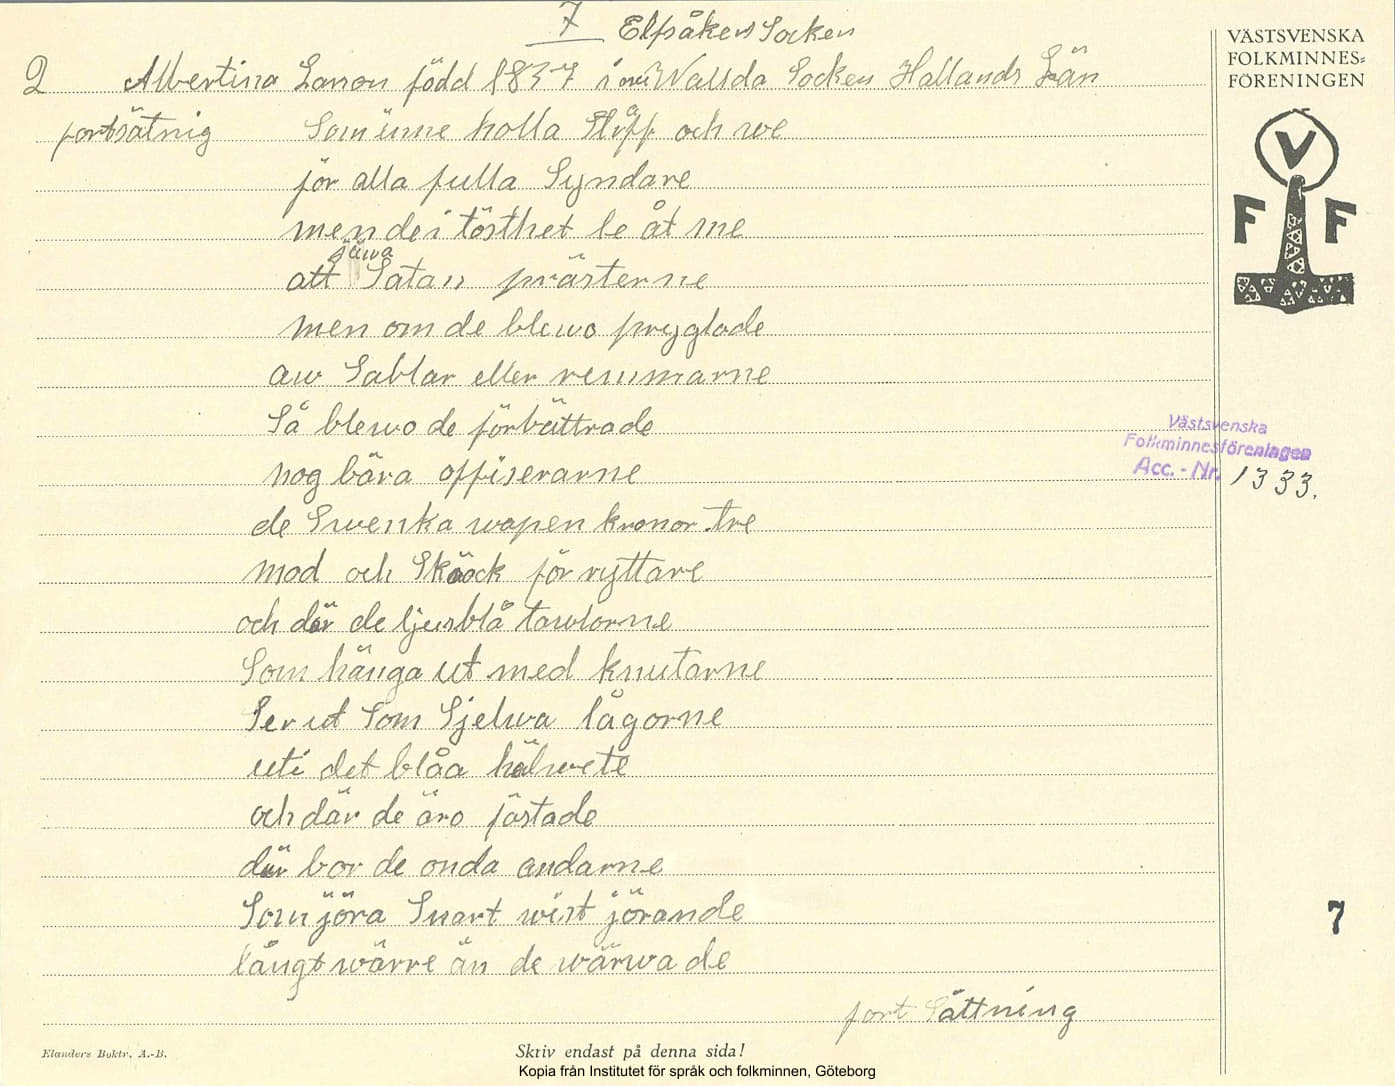 7 Elfsåkers Socken
VÄSTSVENSKA
FOLKMINNES-
FÖRENINGEN
2 Albertina Larson född 1837 i Wallda Socken Hallands Län
fortsätnig Som inne holla Släpp och we
för alla fulla Syndare
men de i tösthet le åt me
sjäwa
att Satan prästerne
men om de blewo pryglade
aw Sablar eller remmarne
Så blewo de förbättrade
nog bära offiserarne
de Swenka wapen kronor tre
mod och Skräck för ryttare
och där de ljusblå tawlorne
Som hänga ut med knutarne
Ser ut Som Sjelwa lågorne
uti det blåa hälwete
och där de äro fästade
där bor de onda andarne
Som jöra Snart wist jörande
långt wärre än de wärwade
fort Sättning
V
F F
Västsvenska
Folkminnesföreningen
Acc. - Nr. 1333.
7
Elanders Boktr. A.-B.
Skriv endast på denna sida!
Kopia från Institutet för språk och folkminnen, Göteborg